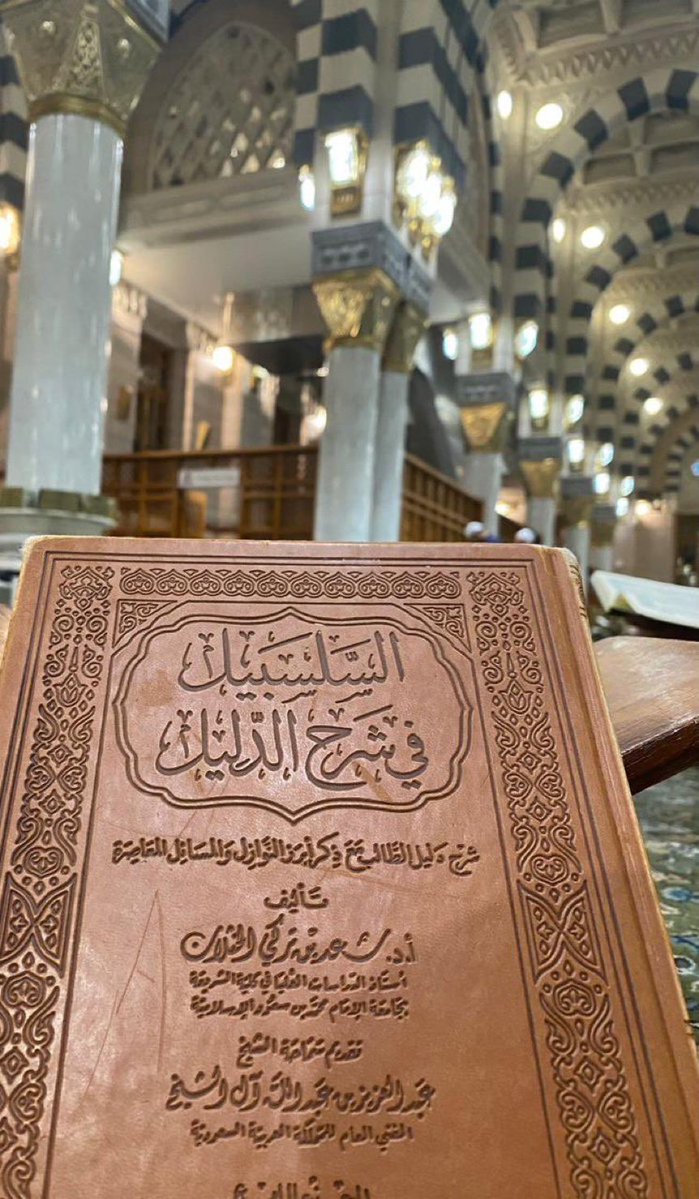 السَّلسَبيل
في شَرح الدَّليل
شرح دليل الطالب مع ذكر أبرز النوازل والمسائل المعاصرة
تأليف
أ.د. سعد بن تركي الخثلان
أستاذ الدراسات العليا في كلية الشريعة
بجامعة الإمام محمد بن سعود الإسلامية
تقديم سماحة الشيخ
عبد العزيز بن عبد الله آل الشيخ
المفتي العام للمملكة العربية السعودية